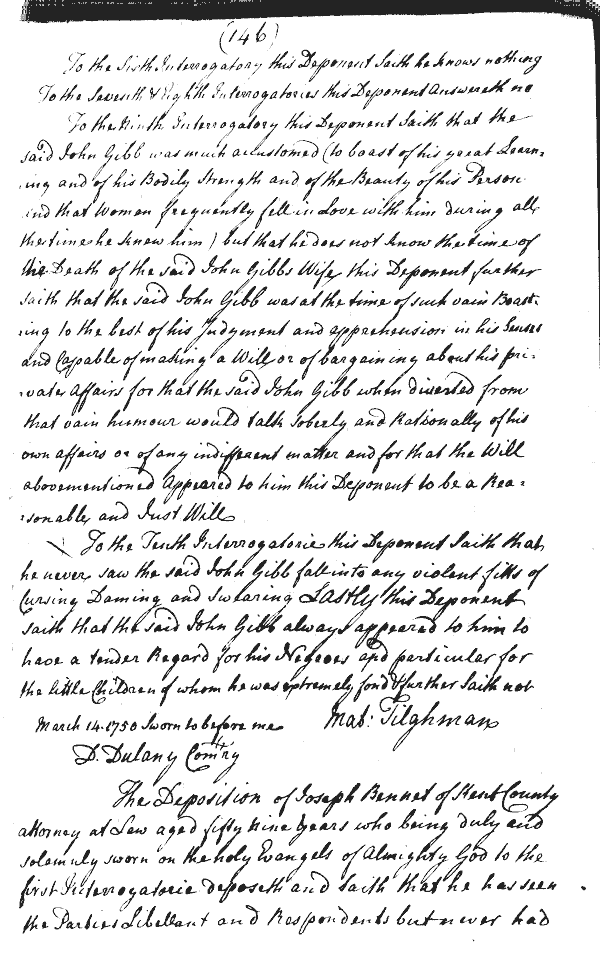 (146)
To the Sixth Interrogatory this Deponent Saith he knows nothing
To the Seventh & Eighth Interrogatories this Deponent Answereth no
To the Ninth Interrogatory this Deponent Saith that the
said John Gibb was much accustomed (to boast of his great Learn=
ing and of his Bodily Strength and of the Beauty of his Person
and that Women frequently fell in Love with him during all
the time he knew him) but that he does not know the time of
the Death of the said John Gibbs Wife this Deponent further
saith that the said John Gibb was at the time of such vain Boast=
ing to the best of his Judgment and apprehension in his Senses
and Capable of making a Will or of bargaining about his pri=
=vate Affairs for that the said John Gibb when diverted from
that vain humour would talk Soberly and Rationally of his
own affairs or of any indifferent matter and for that the Will
abovementioned Appeared to him this Deponent to be a Rea=
=sonable and Just Will
To the Tenth Interrogatorie this Deponent Saith that
he never saw the said John Gibb fall into any violent fitts of
Cursing Daming and Swearing LASTLY this Deponent
saith that the said John Gibb always appeared to him to
have a tender Regard for his Negroes and particular for
the little Children of whom he was extremely fond & further Saith not
March 14. 1750 Sworn to before me Mat: Tilghman
D. Dulany Com:ry
The Deposition of Joseph Bennet of Kent County
Attorney at Law aged fifty Nine Years who being duly and
solemnly sworn on the holy Evangels of Almighty God to the
first Interrogatorie deposeth and saith that he has seen
the Parties Libellant and Respondents but never had